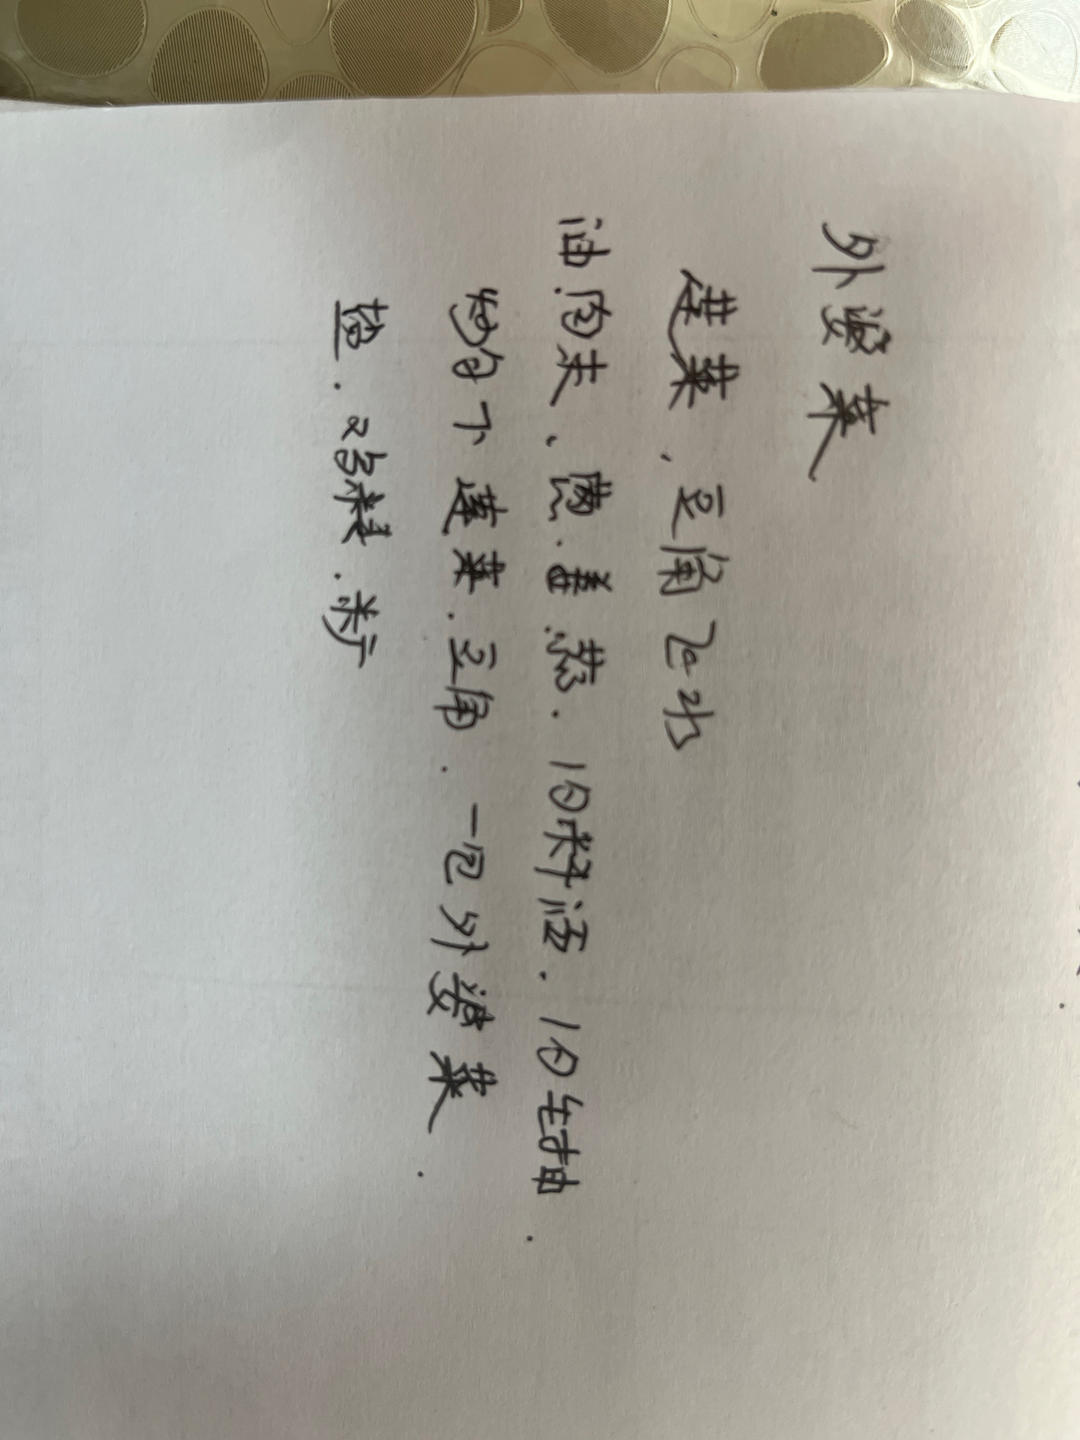 外婆菜
莲菜、豆角飞水
油.肉末、葱.姜.蒜.1勺料酒.1勺生抽.
炒匀下莲菜.豆角.一包外婆菜.
盐.鸡精.